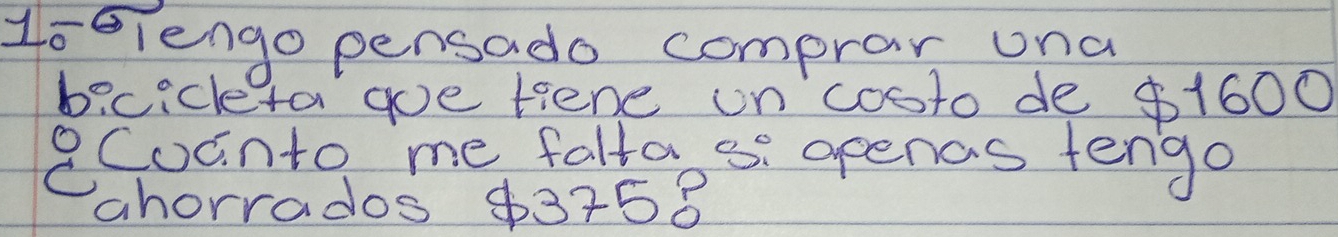 1º- Tengo pensado comprar una
bicicleta que tiene un costo de $1600
¿Cuánto me falta si apenas tengo
ahorrados $375?